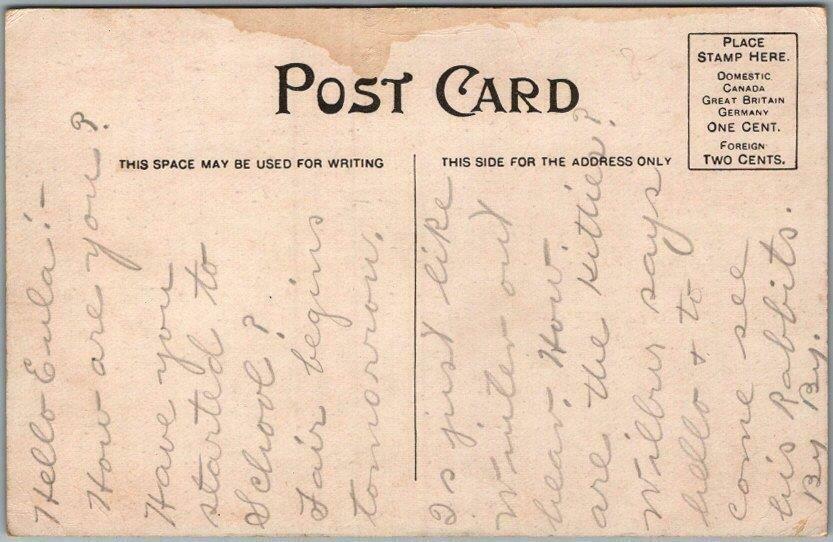 POST CARD
PLACE
STAMP HERE.
DOMESTIC
CANADA
GREAT BRITAIN
GERMANY
ONE CENT.
FOREIGN
TWO CENTS.
THIS SPACE MAY BE USED FOR WRITING
THIS SIDE FOR THE ADDRESS ONLY
Hello Eula:-
How are you?
Have you
started to
School?
Fair begins
tomorrow.
Is just like
Winter out
hear. How
are the kitties?
Wilbur says
hello + to
come see
his Rabbits.
By By.